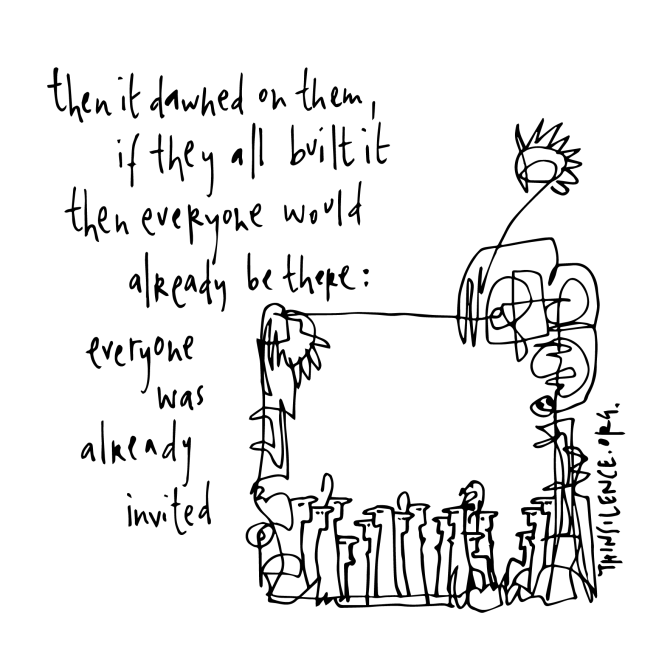 then it dawned on them,
if they all built it
then everyone would
already be there:
everyone
was
already
invited
THINSILENCE.ORG.